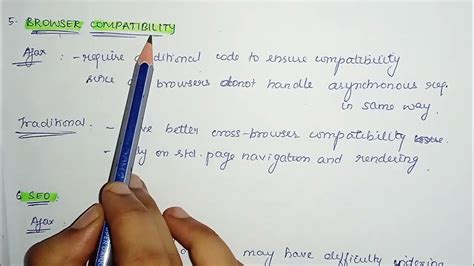 5. BROWSER COMPATIBILITY
Ajax : - require additional code to ensure compatibility
since all browsers donot handle asynchronous req.
in same way.
Traditional - have better cross-browser compatibility
rely on std. page navigation and rendering
6 SEO
Ajax
may have difficulty indexing